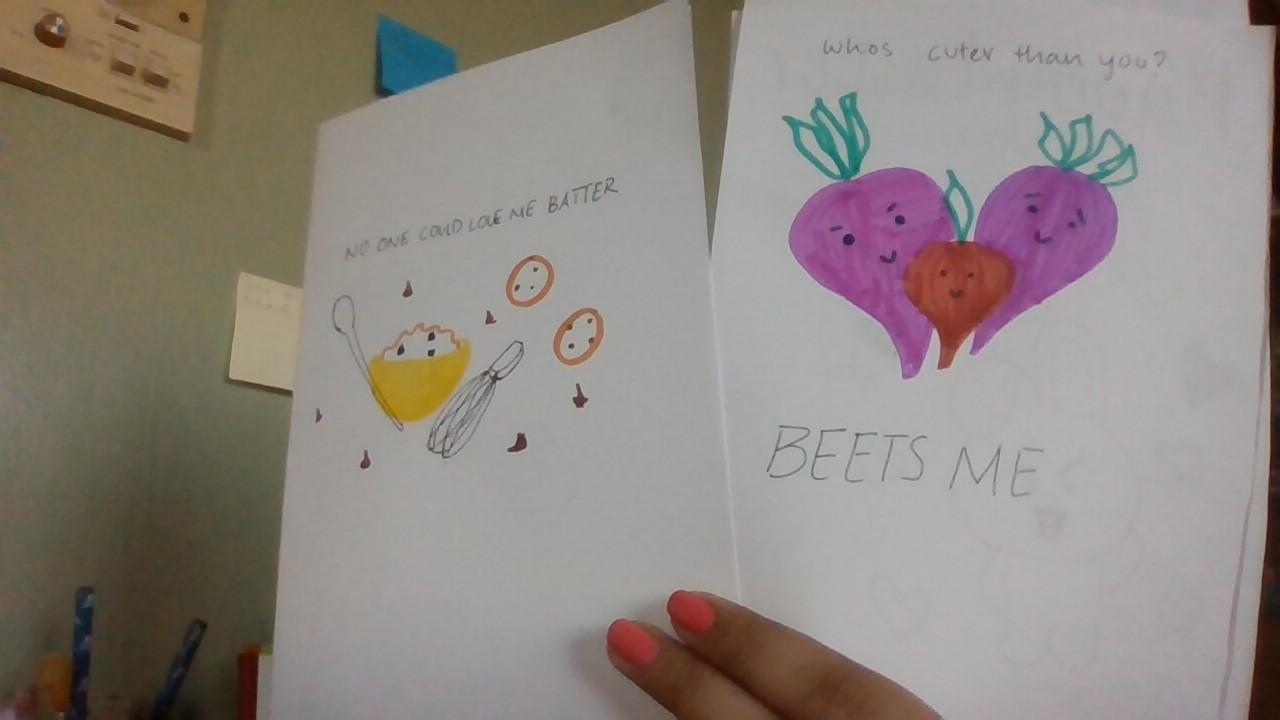 NO ONE COULD LOVE ME BATTER
whos cuter than you?
BEETS ME